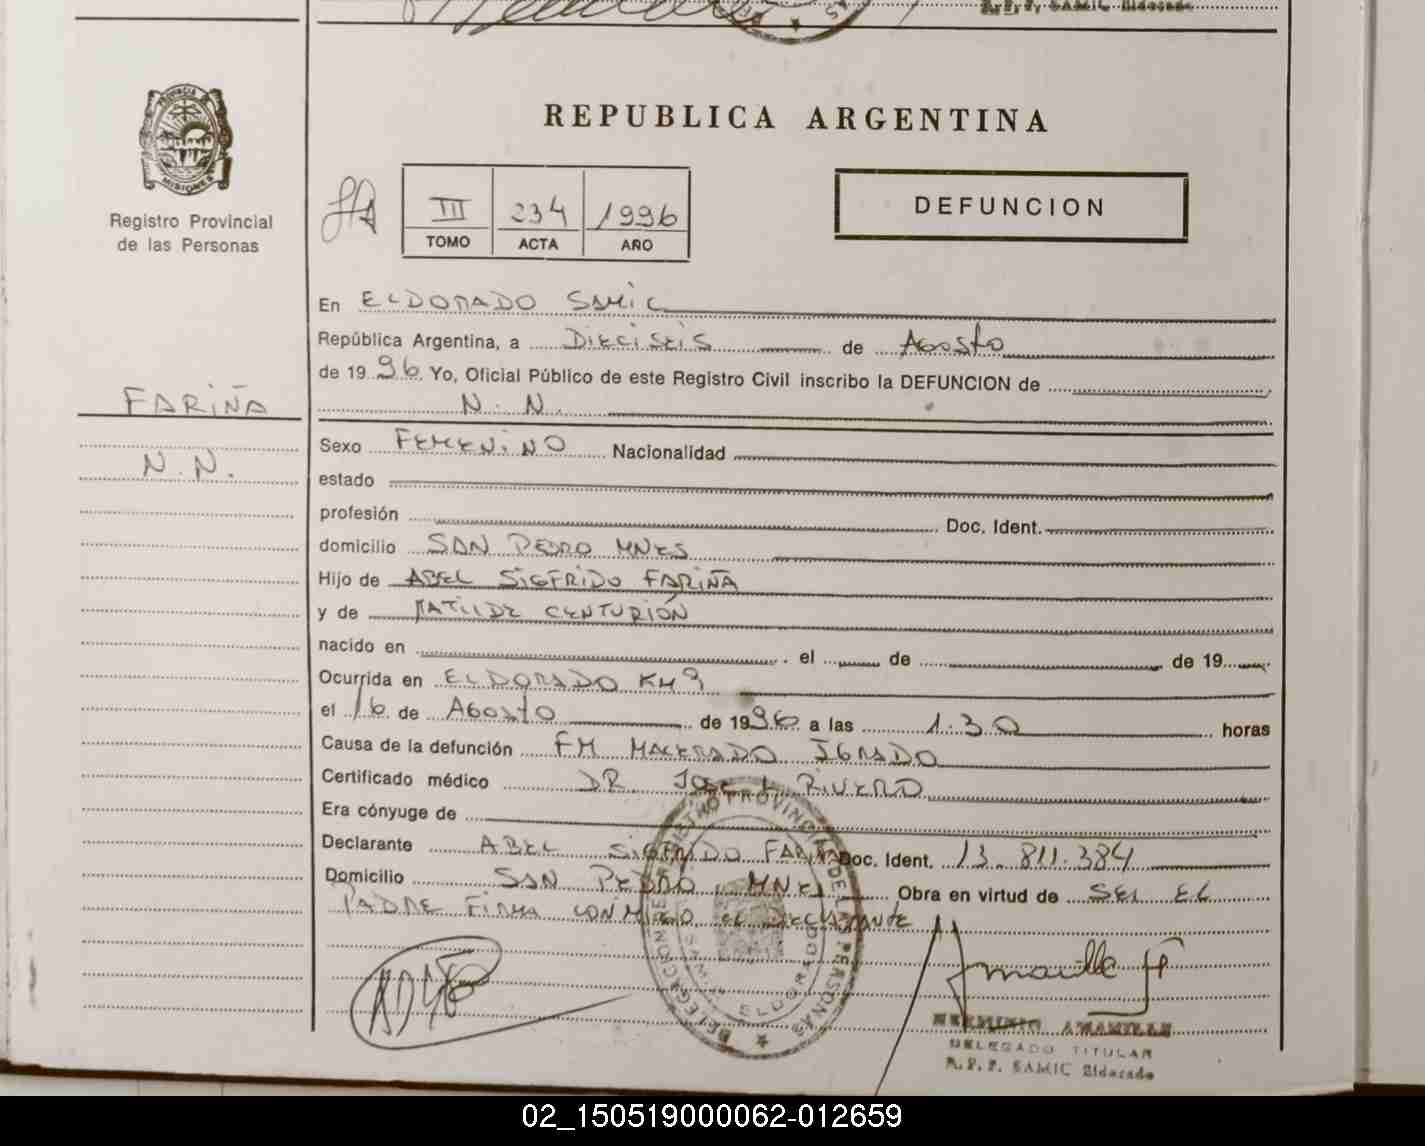 R.P.P. SAMIC Eldorado
PROVINCIA DE
MISIONES
Registro Provincial
de las Personas
REPUBLICA ARGENTINA
III 234 1996
TOMO ACTA AÑO
DEFUNCION
En ELDORADO SAMIC
República Argentina, a DIECISEIS de AGOSTO
de 1996. Yo, Oficial Público de este Registro Civil inscribo la DEFUNCION de
FARIÑA
N. N.
N. N.
Sexo FEMENINO Nacionalidad
estado
profesión Doc. Ident.
domicilio SAN PEDRO MNES
Hijo de ABEL SIGFRIDO FARIÑA
y de MATILDE CENTURIÓN
nacido en el de de 19
Ocurrida en ELDORADO KM 9
el 16 de AGOSTO de 1996 a las 1.30 horas
Causa de la defunción FM MACERADO IGRADO
Certificado médico DR. JOSE L RIVERO
Era cónyuge de
Declarante ABEL SIGFRIDO FARIÑA Doc. Ident. 13.811.384
Domicilio SAN PEDRO MNES Obra en virtud de SER EL
PADRE FIRMA CONMIGO EL DECLARANTE
REGISTRO PROVINCIAL DE LAS PERSONAS
DELEGACION
ELDORADO
HERMINIO AMARILLE
DELEGADO TITULAR
R.P.P. SAMIC Eldorado
02_150519000062-012659